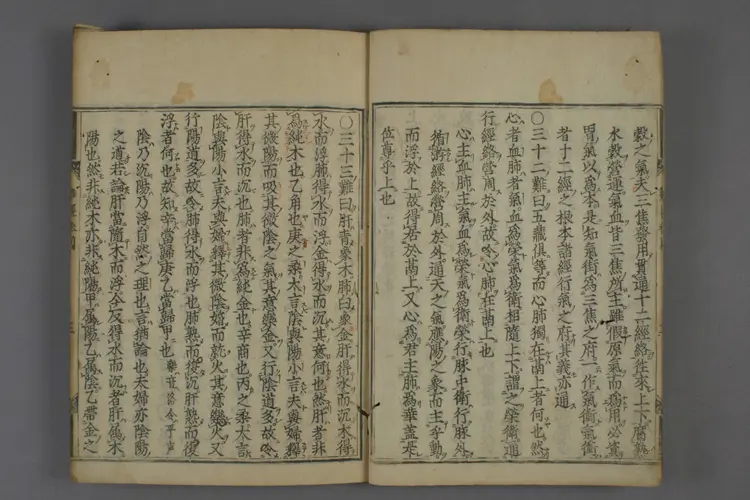 穀之氣夫三焦發用貫通十二經絡往來上下腐熟
水穀營運氣血皆三焦所主雖假原氣而爲用必資
胃氣以爲本是知氣衝爲三焦之府一作氣衝氣衝
者十二經之根本諸經行氣之府其義亦通
〇三十二難曰五藏俱等而心肺獨在鬲上者何也然
心者血肺者氣血爲榮氣爲衛相隨上下謂之榮衛通
行經絡營周於外故令心肺在鬲上也
心主血肺主氣血爲榮氣爲衛榮行脉中衛行脉外
循經絡營周於外通天之氣應陽之象而主乎動
而浮於上故得居於鬲上又心爲君主肺爲華蓋
位尊乎上也
〇三十三難曰肝青象木肺白象金肝得水而沉木得
水而浮肺得水而浮金得水而沉其意何也然肝者非
爲純木也乙角也庚之柔大言陰與陽小言夫與婦釋
其微陽而吸其微陰之氣其意樂金又行陰道多故令
肝得水而沉也肺者非爲純金也辛商也丙之柔大言
陰與陽小言夫與婦釋其微陰婚而就火其意樂火又
行陽道多故令肺得水而浮也肺熟而復沉肝熟而復
浮者何也故知辛當歸庚乙當歸甲也
陰乃沉陽乃浮自然之理也言猶論也夫婦亦陰陽
之道若論肝當隨木而浮今反得水而沉者肝屬木
陽也然非純木亦非純陽甲屬陽乙屬陰乙帶金之